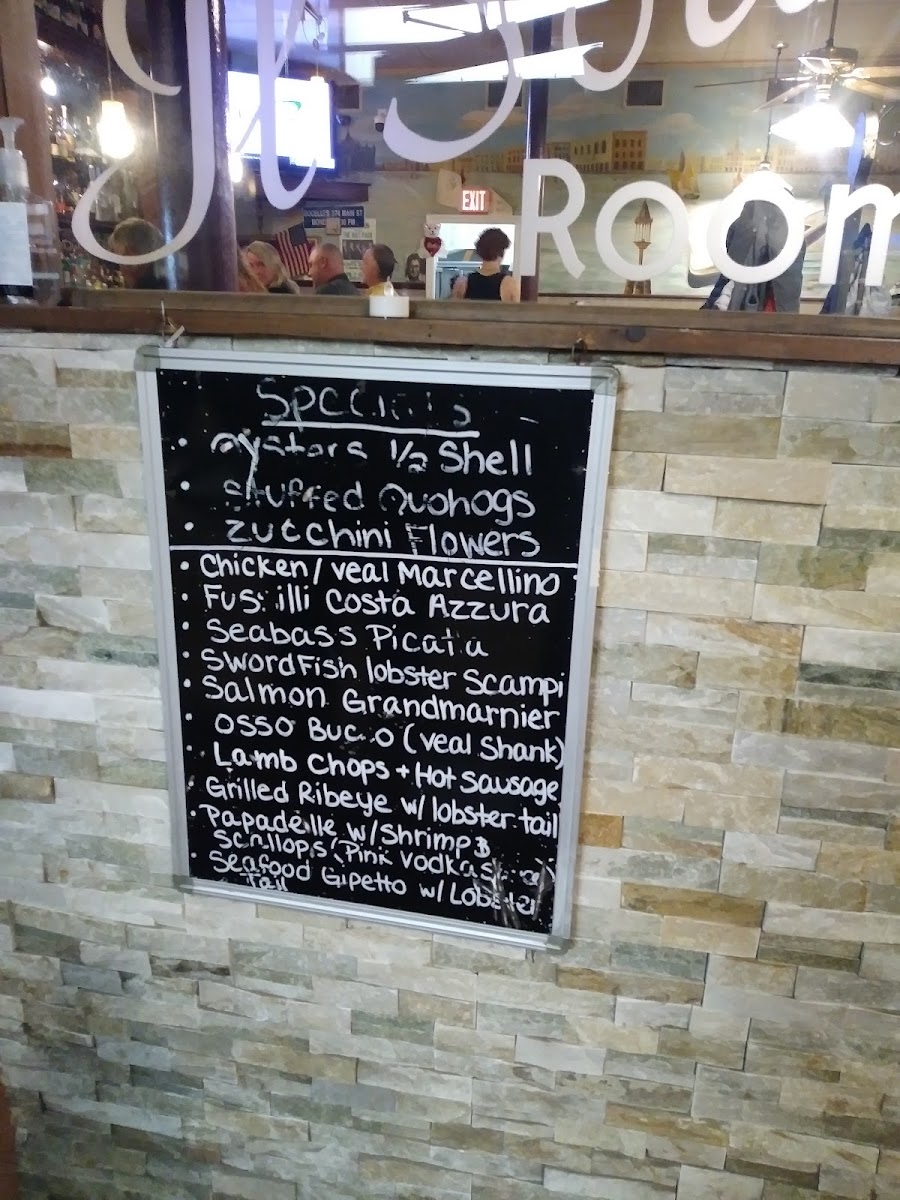 Room
EXIT
Specials
• oysters 1/2 Shell
• Stuffed Quohogs
• Zucchini Flowers
• Chicken/ veal Marcellino
• Fusilli Costa Azzura
• Seabass Picata
• SwordFish lobster Scampi
• Salmon Grandmarnier
• OSSO Bucco (veal Shank)
• Lamb Chops + Hot Sausage
• Grilled Ribeye w/ lobster tail
• Papadelle w/ Shrimp &
Scallops (Pink Vodka Sauce)
• Seafood Gipetto w/ Lobster
Tail